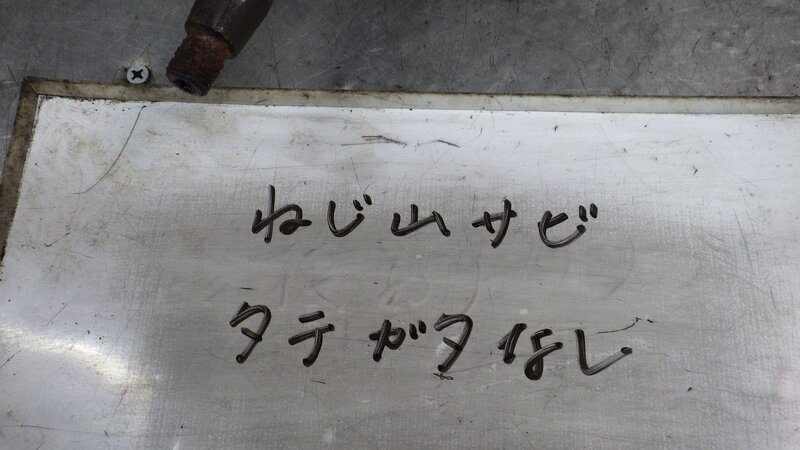 ねじ山サビ
タテガタなし